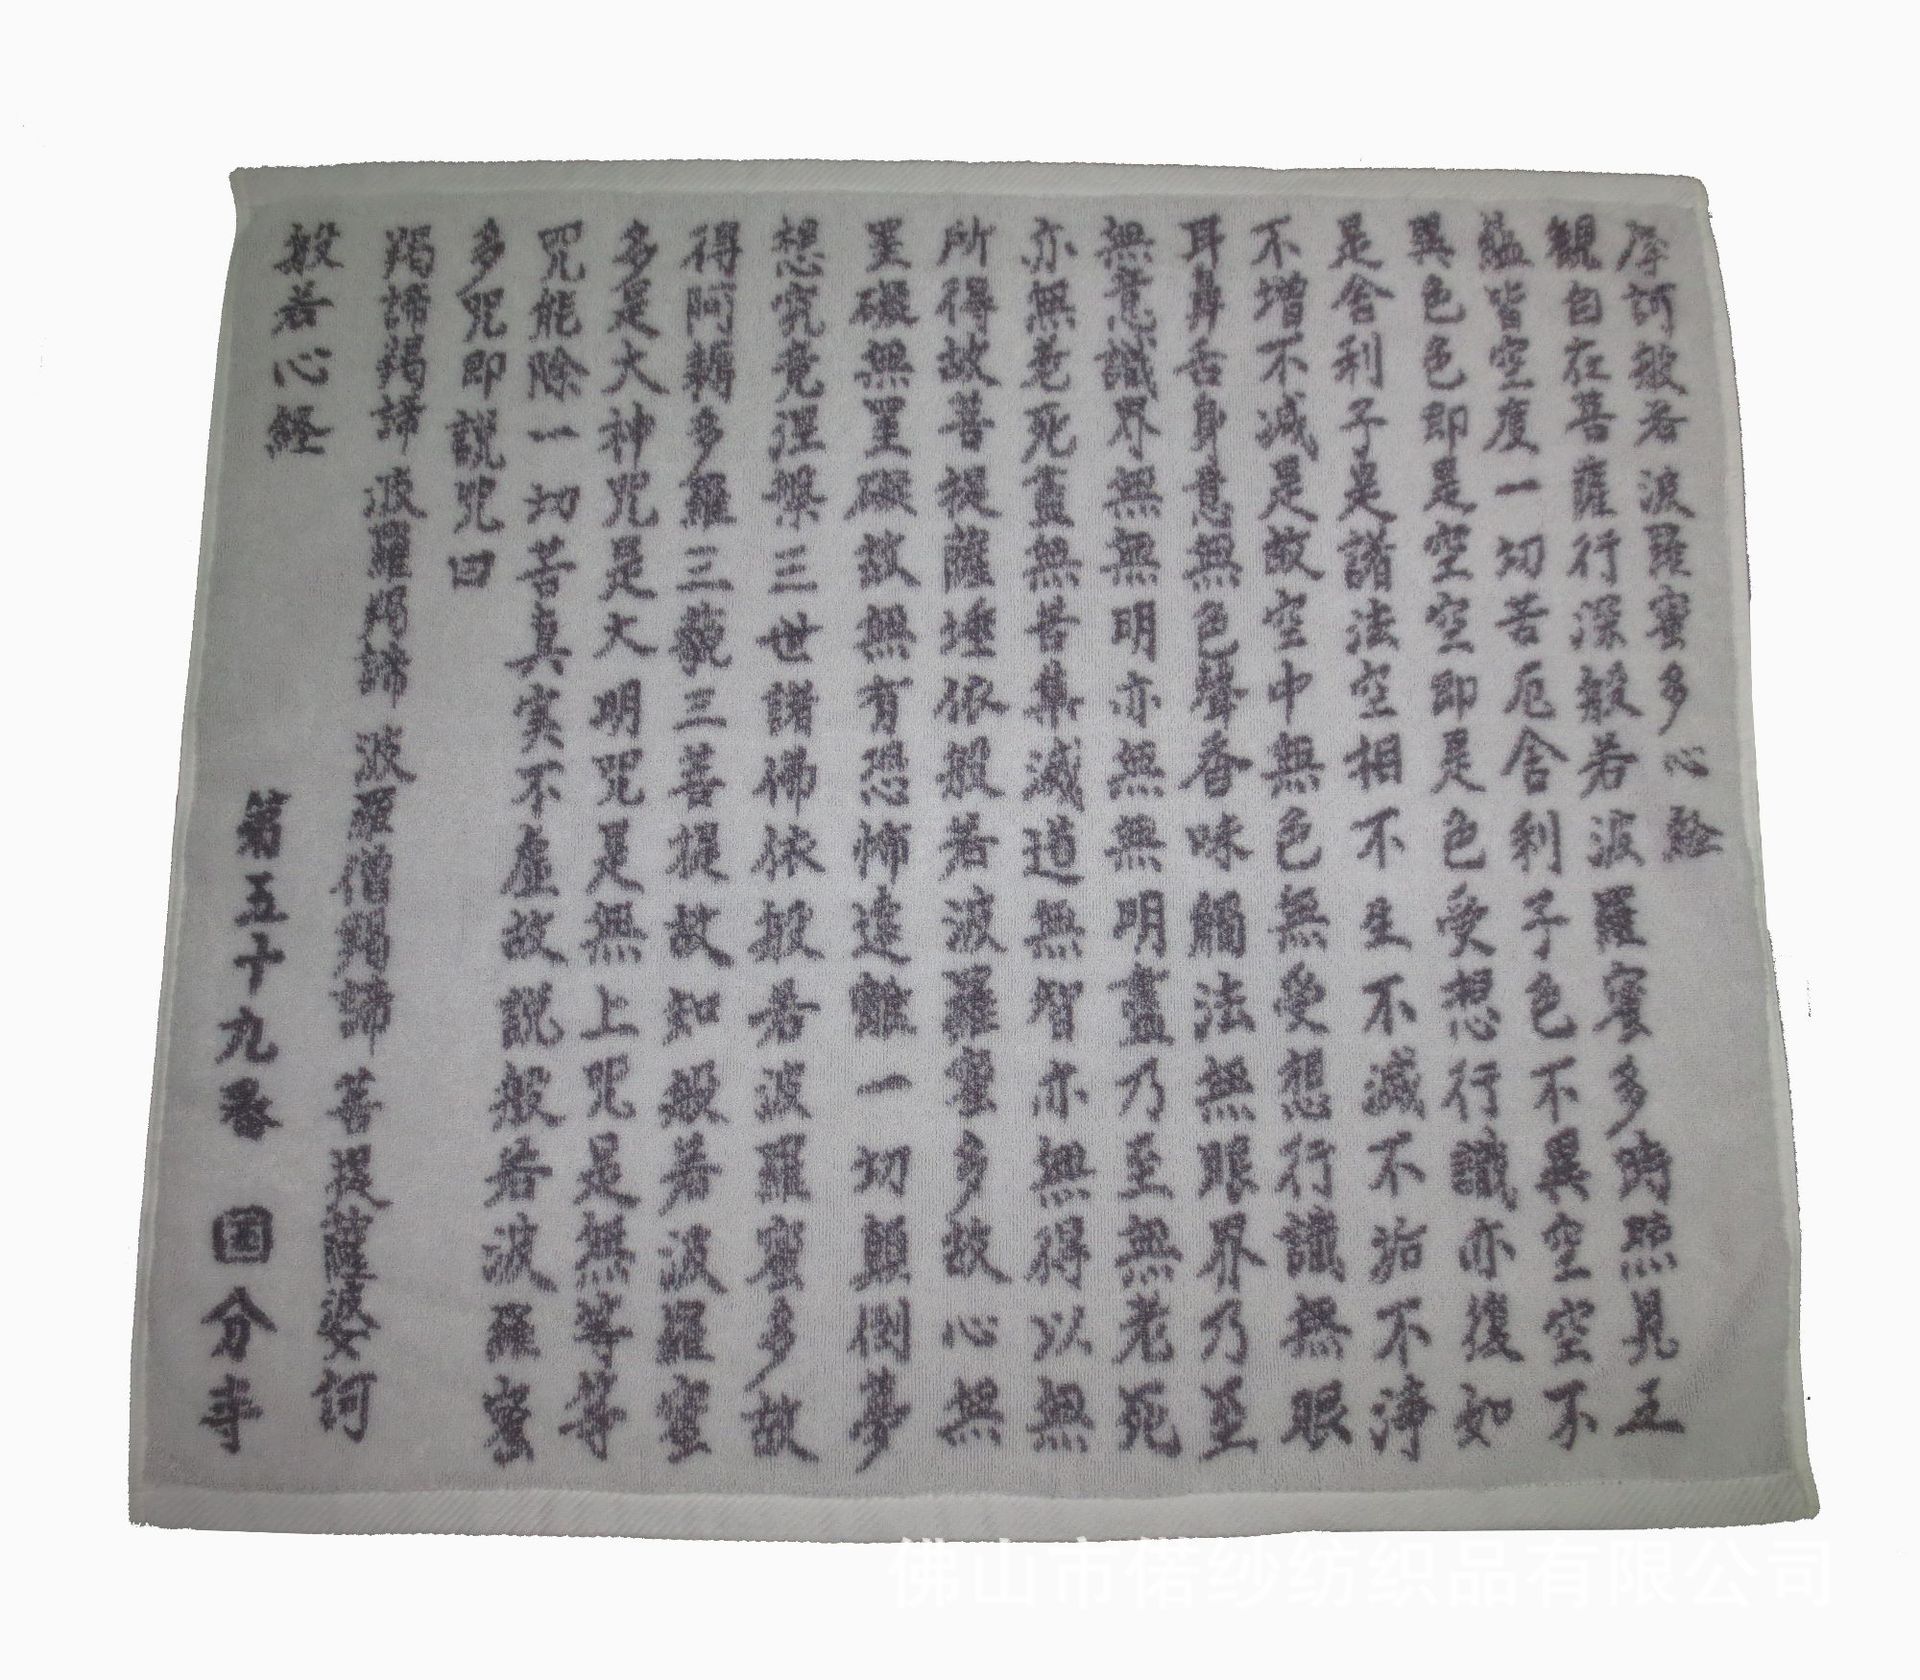 摩訶般若波羅蜜多心経
観自在菩薩行深般若波羅蜜多時照見五
蘊皆空度一切苦厄舎利子色不異空空不
異色色即是空空即是色受想行識亦復如
是舎利子是諸法空相不生不滅不垢不浄
不増不減是故空中無色無受想行識無眼
耳鼻舌身意無色聲香味觸法無眼界乃至
無意識界無無明亦無無明盡乃至無老死
亦無老死盡無苦集滅道無智亦無得以無
所得故菩提薩埵依般若波羅蜜多故心無
罣礙無罣礙故無有恐怖遠離一切顛倒夢
想究竟涅槃三世諸佛依般若波羅蜜多故
得阿耨多羅三藐三菩提故知般若波羅蜜
多是大神咒是大明咒是無上咒是無等等
咒能除一切苦真実不虚故説般若波羅蜜
多咒即説咒曰
羯諦羯諦 波羅羯諦 波羅僧羯諦 菩提薩婆訶
般若心経
第五十九番 国分寺
佛山市偌纱纺织品有限公司